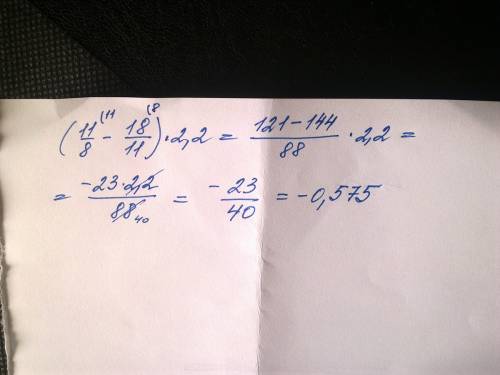 (11/8 (11 − 18/11 (8) · 2,2 = 121 − 144/88 · 2,2 =
= −23 · 2,2/8,8 40 = −23/40 = −0,575